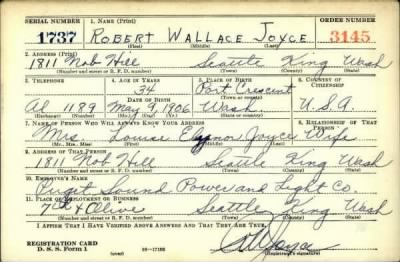 SERIAL NUMBER 1. NAME (Print) ORDER NUMBER
1737 ROBERT WALLACE JOYCE 3145
(First) (Middle) (Last)
2. ADDRESS (Print)
1811 Nob Hill Seattle King Wash
(Number and street or R. F. D. number) (Town) (County) (State)
3. TELEPHONE 4. AGE IN YEARS 5. PLACE OF BIRTH 6. COUNTRY OF CITIZENSHIP
34 Port Crescent
DATE OF BIRTH (Town or county)
Al 1189 May 9, 1906 Wash U.S.A.
(Exchange) (Number) (Mo.) (Day) (Yr.) (State or country)
7. NAME OF PERSON WHO WILL ALWAYS KNOW YOUR ADDRESS 8. RELATIONSHIP OF THAT PERSON
Mrs. Louise Eleanor Joyce Wife
(Mr., Mrs., Miss) (First) (Middle) (Last)
9. ADDRESS OF THAT PERSON
1811 Nob Hill Seattle King Wash
(Number and street or R. F. D. number) (Town) (County) (State)
10. EMPLOYER'S NAME
Puget Sound Power and Light Co.
11. PLACE OF EMPLOYMENT OR BUSINESS
7th & Olive Seattle King Wash
(Number and street or R. F. D. number) (Town) (County) (State)
I AFFIRM THAT I HAVE VERIFIED ABOVE ANSWERS AND THAT THEY ARE TRUE.
REGISTRATION CARD
D. S. S. Form 1 (over) Joyce
(Registrant's signature)